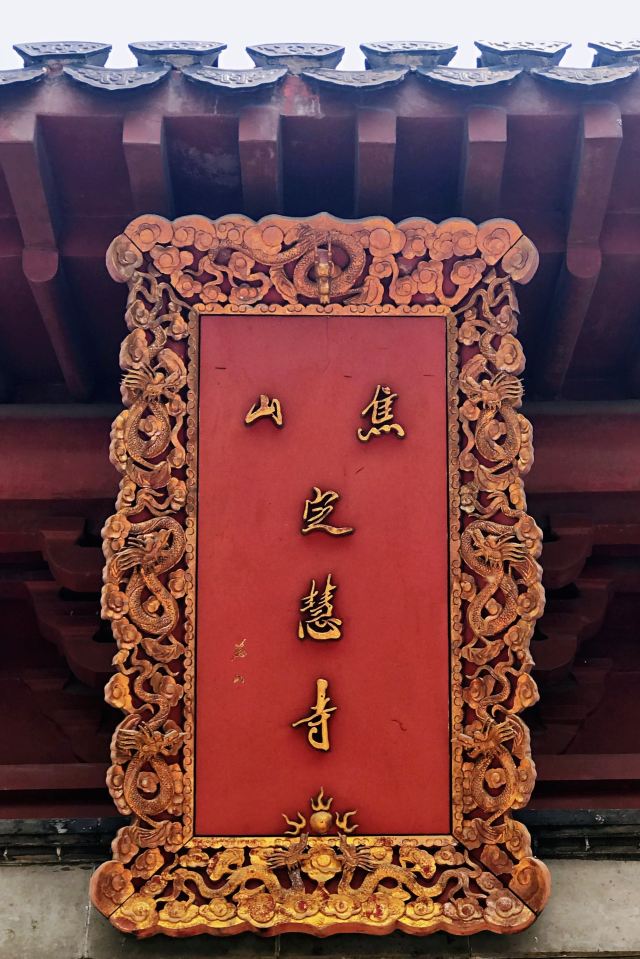 焦山
定慧寺